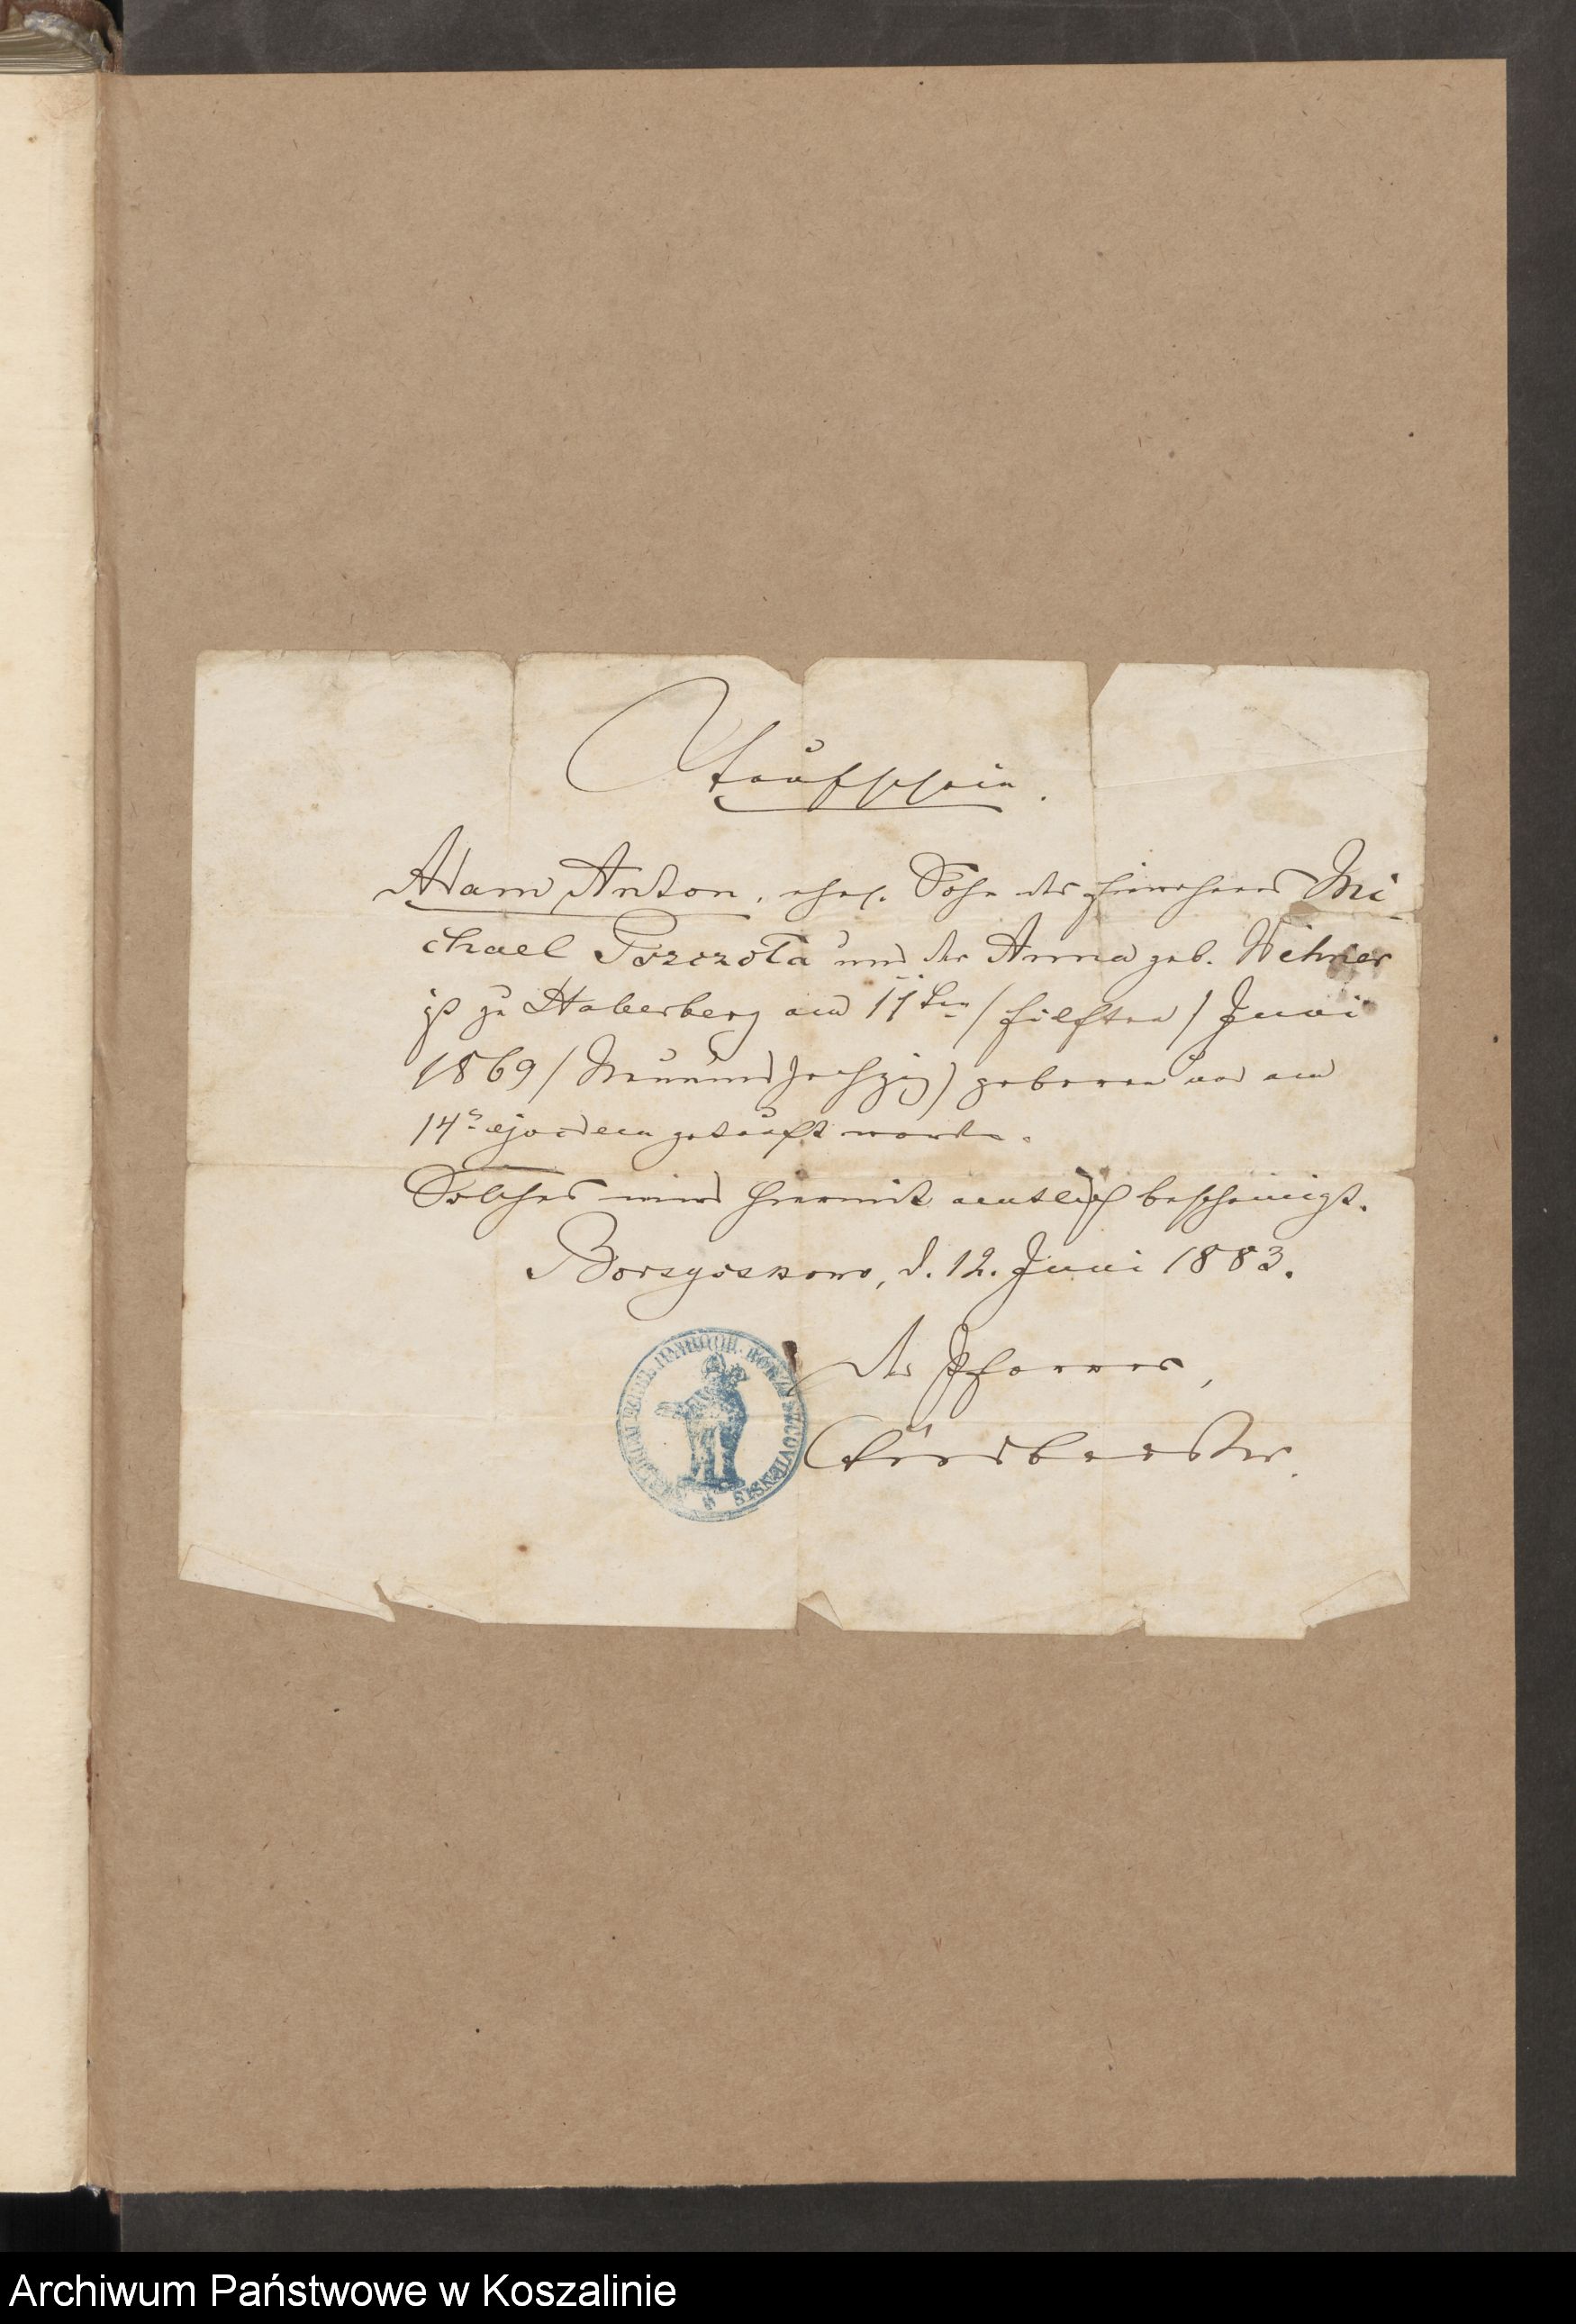 Taufschein.
Adam Anton, ehel. Sohn des Einwohners Mi-
chael Pszczoła und der Anna geb. Wehner
ist zu Haberberg am 11ten / Eilften / Juni
1869 / Neunundsechzig) geboren und am
14. ejusdem getauft worden.
Solches wird hiermit amtlich bescheinigt.
Borzyskowo, d. 12. Juni 1883.
Der Pfarrer,
Archiwum Państwowe w Koszalinie